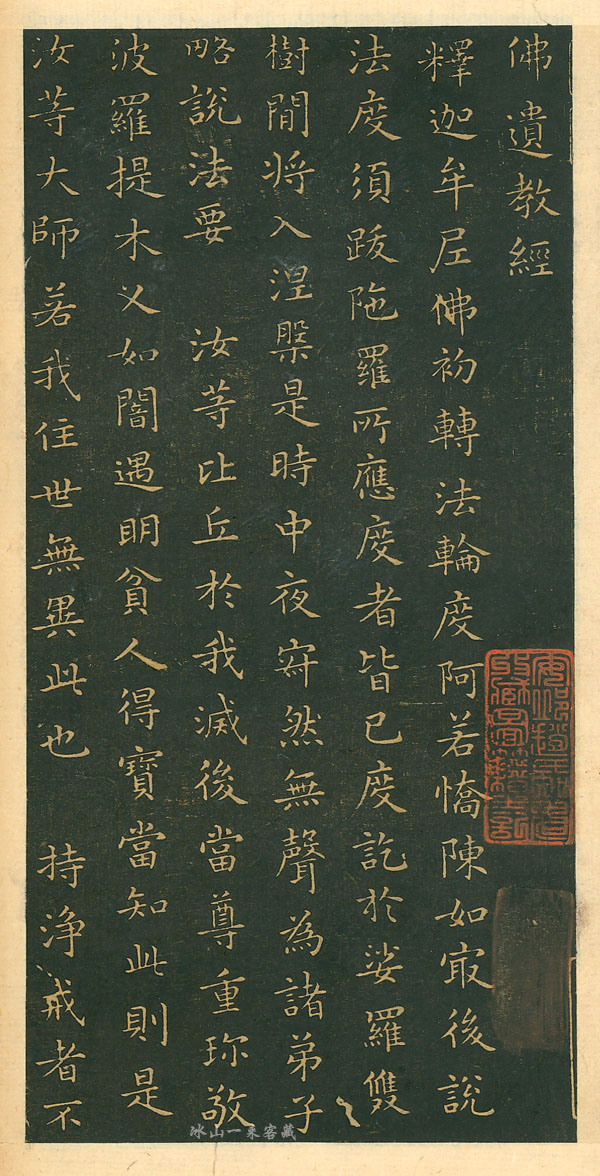 佛遺教經
釋迦牟尼佛初轉法輪度阿若憍陳如㝡後說
法度須跋陁羅所應度者皆已度訖於娑羅雙
樹間将入涅槃是時中夜寂然無聲為諸弟子
略說法要 汝等比丘於我滅後當尊重珎敬
波羅提木叉如闇遇明貧人得寶當知此則是
汝等大師若我住世無異此也 持净戒者不
冰山一来客藏